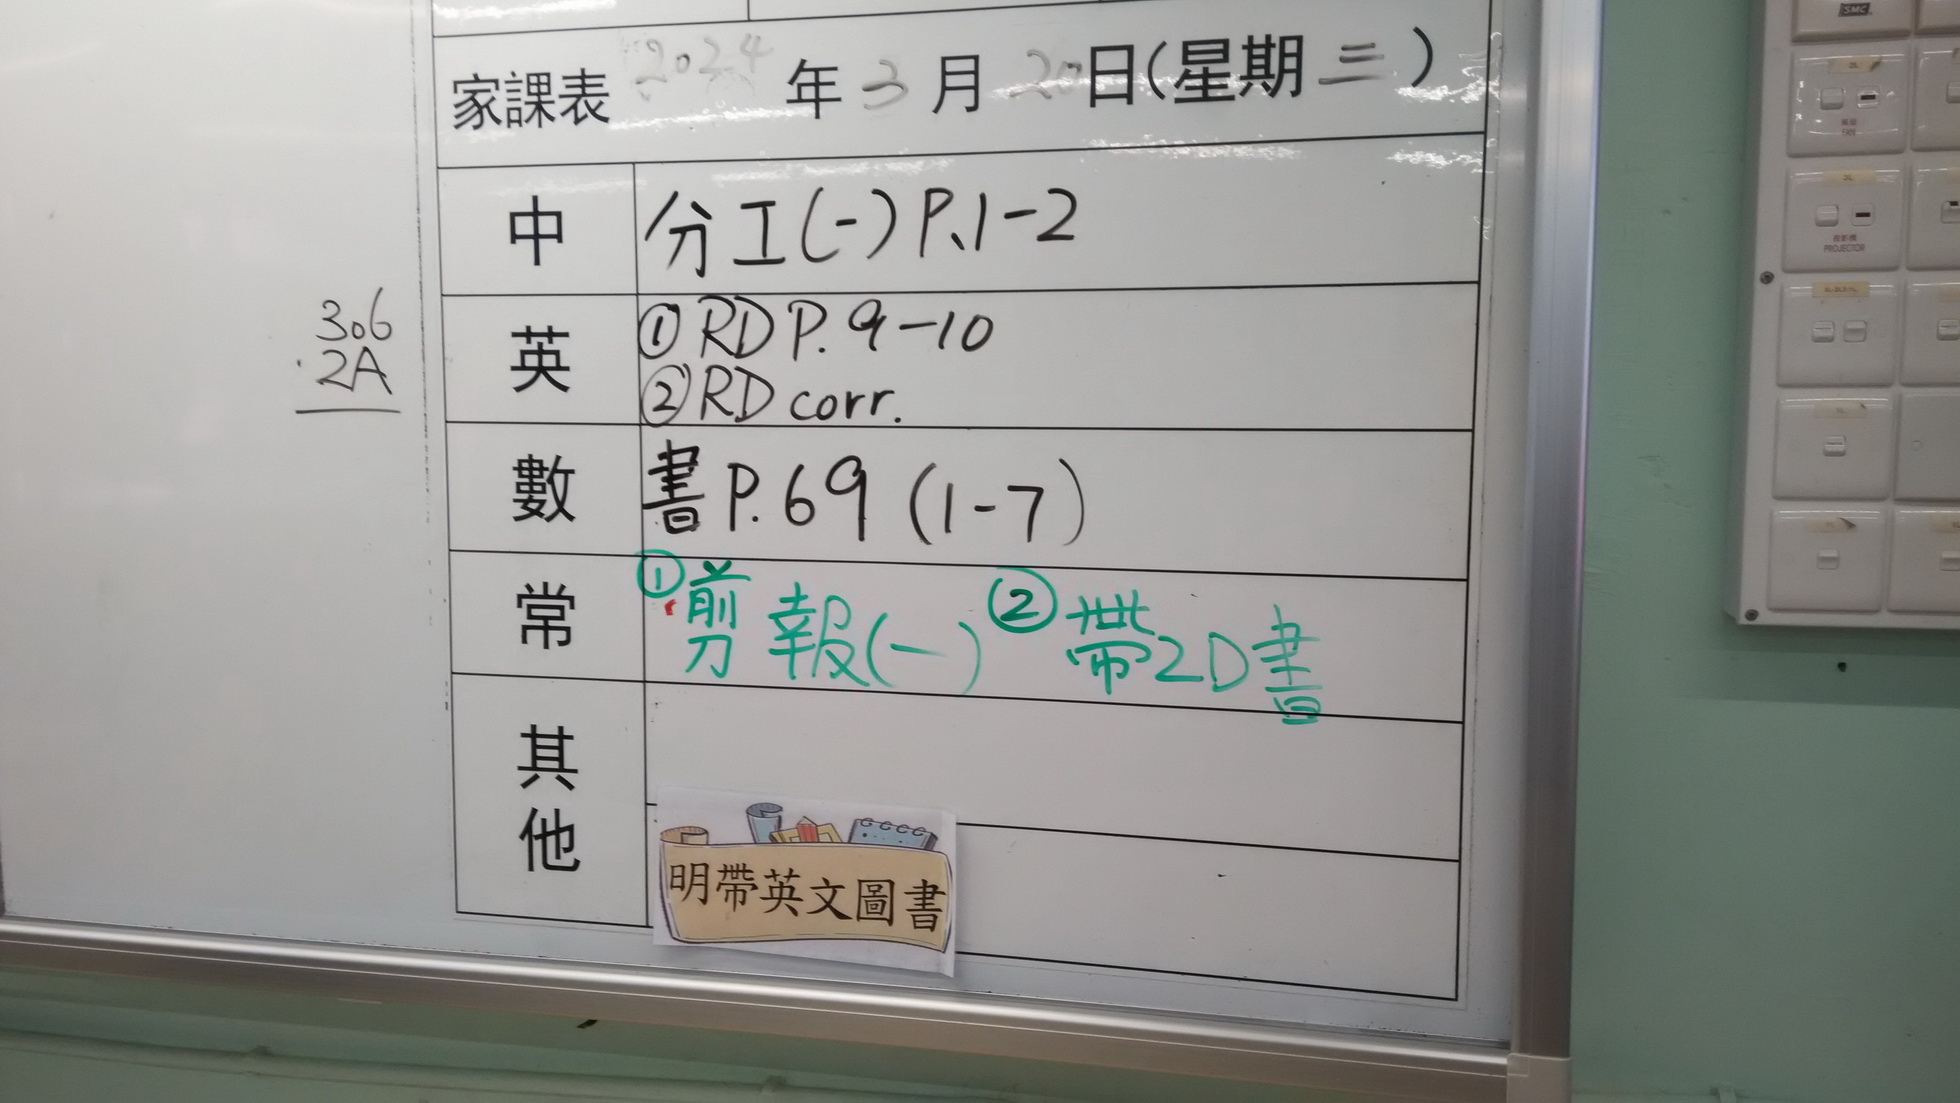 家課表 2024 年 3 月 20 日(星期 三 )
中 分工(一) P.1-2
英 ① RD P. 9-10
② RD corr.
數 書 P. 69 (1-7)
常 ① 剪報(一) ② 帶2D書
其他
明帶英文圖書
306
2A
SMC
FAN
PROJECTOR